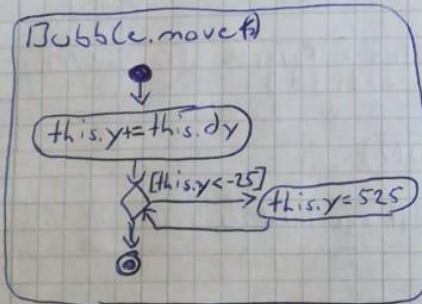 Bubble.move()
this.y+=this.dy
[this.y<-25]
this.y=525